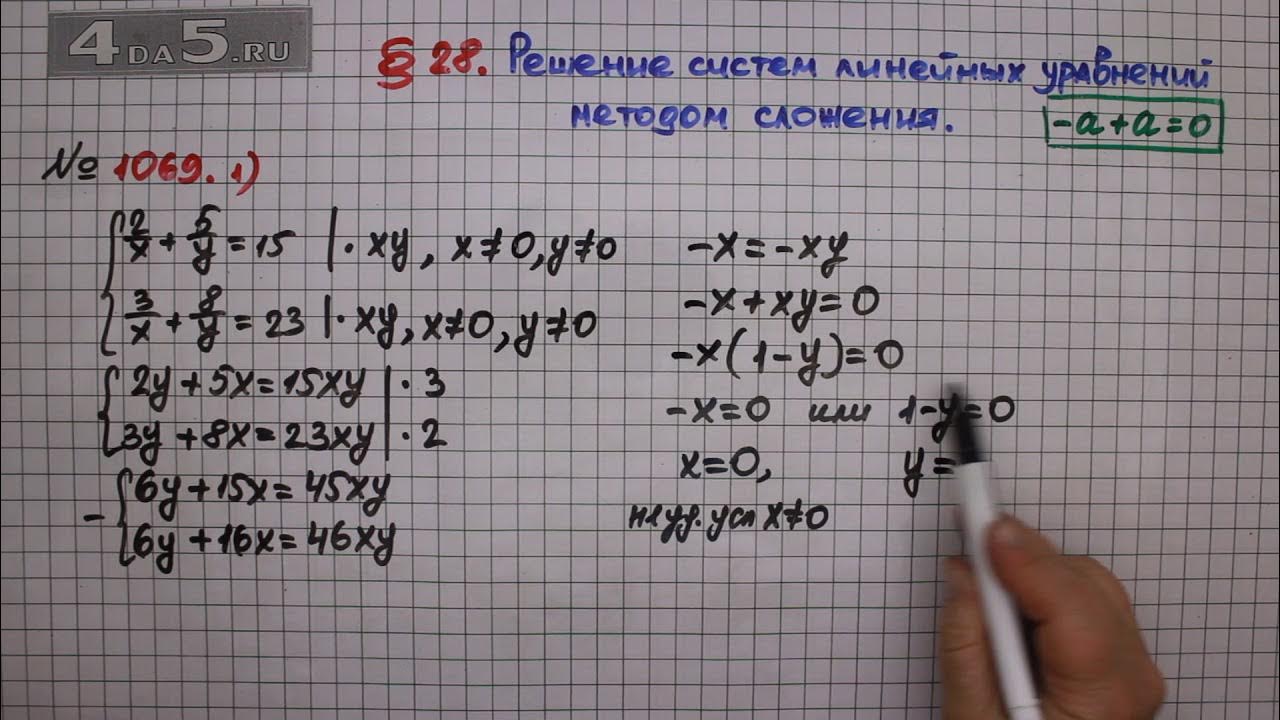 4DA5.RU
§ 28. Решение систем линейных уравнений
методом сложения.
-a+a=0
№ 1069. 1)
2/x + 5/y = 15 | · xy, x≠0, y≠0
3/x + 8/y = 23 | · xy, x≠0, y≠0
2y + 5x = 15xy | · 3
3y + 8x = 23xy | · 2
- 6y + 15x = 45xy
6y + 16x = 46xy
-x = -xy
-x + xy = 0
-x(1-y) = 0
-x=0 или 1-y=0
x=0, y=
не уд. усл x≠0